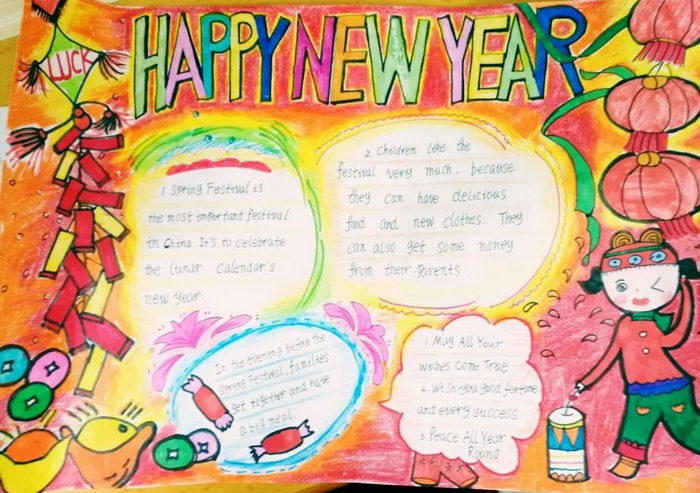 HAPPY NEW YEAR
LUCK
1. Spring Festival is
the most important festival
in China. It's to celebrate
the lunar calendar's
new year.
2. Children like the
festival very much, because
they can have delicious
food and new clothes. They
can also get some money
from their parents.
In the evening before the
Spring Festival, families
get together and have
a big meal.
1. May All Your
wishes Come True
2. Wish you good fortune
and every success.
3. Peace All Year
Round